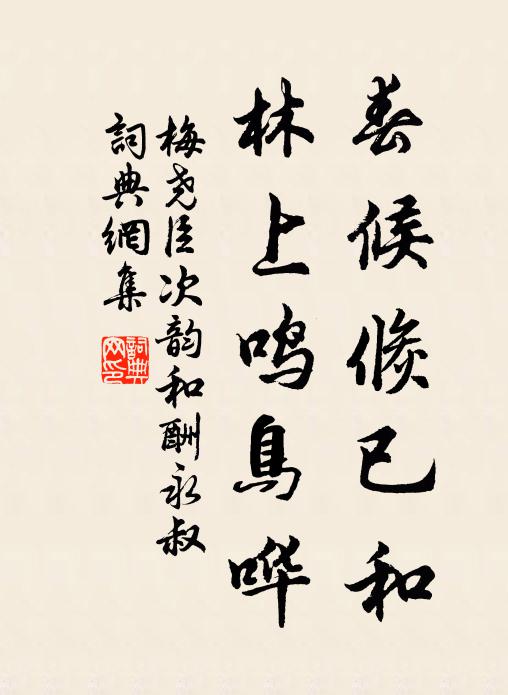 春候倏已和
林上鸣鳥哗
梅尧臣次韵和酬永叔
詞典網集
詞典網印